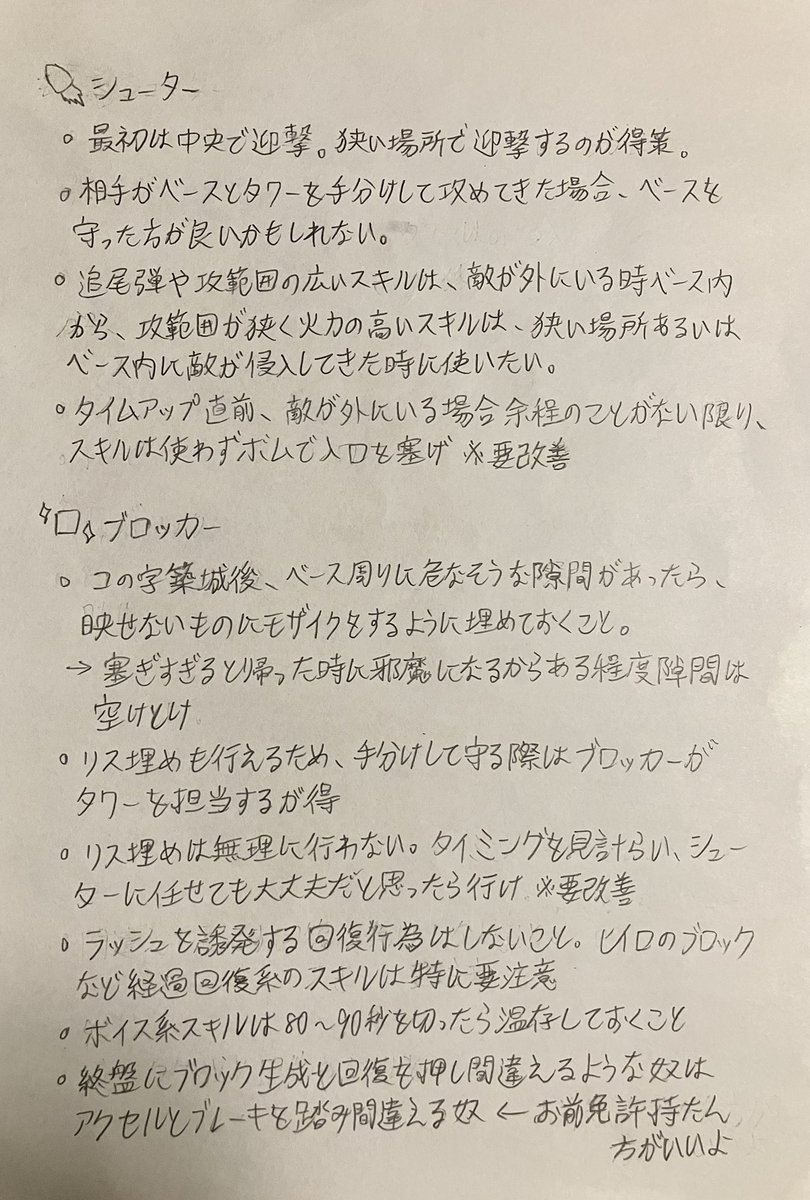 シューター
○ 最初は中央で迎撃。狭い場所で迎撃するのが得策。
○ 相手がベースとタワーを手分けして攻めてきた場合、ベースを
守った方が良いかもしれない。
○ 追尾弾や攻範囲の広いスキルは、敵が外にいる時ベース内
から、攻範囲が狭く火力の高いスキルは、狭い場所あるいは
ベース内に敵が侵入してきた時に使いたい。
○ タイムアップ直前、敵が外にいる場合余程のことがない限り、
スキルは使わずボムで入口を塞げ ※要改善
ブロッカー
○ コの字築城後、ベース周りに危なそうな隙間があったら、
映せないものにモザイクをするように埋めておくこと。
→ 塞ぎすぎると帰った時に邪魔になるからある程度隙間は
空けとけ
○ リス埋めも行えるため、手分けして守る際はブロッカーが
タワーを担当するが得
○ リス埋めは無理に行わない。タイミングを見計らい、シュー
ターに任せても大丈夫だと思ったら行け ※要改善
○ ラッシュを誘発する回復行為はしないこと。ヒイロのブロック
など経過回復系のスキルは特に要注意
○ ボイス系スキルは80～90秒を切ったら温存しておくこと
○ 終盤にブロック生成と回復を押し間違えるような奴は
アクセルとブレーキを踏み間違える奴 ← お前免許持たん
方がいいよ